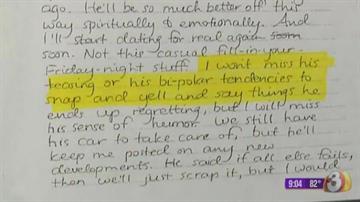 ago. He'll be so much better off this
way spiritually & emotionally. And
I'll start dating for real again soon
soon. Not this casual fill-in-your-
Friday-night stuff. I wont miss his
teasing or his bi-polar tendencies to
snap and yell and say things he
ends up regretting, but I will miss
his sense of humor. We still have
his car to take care of, but he'll
keep me posted on any new
developments. He said if all else fails,
then we'll just scrap it, but I would
9:04 82° 3